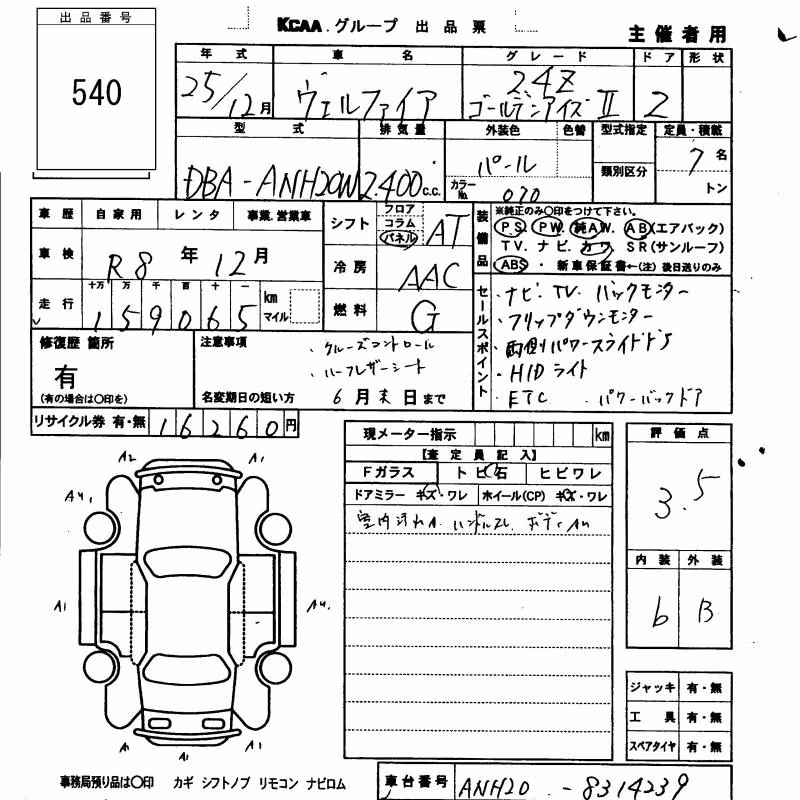 出品番号
540
KCAA グループ 出品票
主催者用
年式 車名 グレード ドア 形状
25/12月 ヴェルファイア 2.4Z ゴールデンアイズ Ⅱ 2
型式 排気量 外装色 色替 型式指定 定員・積載
類別区分
DBA-ANH20W 2.400c.c. パール カラーNo. 070 7名
トン
車歴 自家用 レンタ 事業.営業車
車検 R8年12月
走行 十万 万 千 百 十 一
159065 km マイル
シフト フロア コラム パネル AT
冷房 AAC
燃料 G
装備品
※純正のみ〇印をつけて下さい。
PS. PW. 純AW. AB(エアバック)
TV. ナビ. カワ SR(サンルーフ)
ABS・新車保証書←(注)後日送りのみ
セールスポイント
・ナビ・TV. バックモニター
・フリップダウンモニター
・両側パワースライドドア
・HIDライト
・ETC ・パワーバックドア
修復歴 箇所
有
(有の場合は〇印を)
注意事項
・クルーズコントロール
・ハーフレザーシート
名変期日の短い方 6月末日まで
リサイクル券 有・無 16260円
現メーター指示 km
【査定員記入】
Fガラス トビ石 ヒビワレ
ドアミラー キズ・ワレ ホイール(CP) キズ・ワレ
室内汚れA. ハンドルスレ. ボディAu
評価点
3.5
内装 外装
b B
A2 A1
A4.
A1 A4.
A1 A1 A1
ジャッキ 有・無
工具 有・無
スペアタイヤ 有・無
事務局預り品は〇印 カギ シフトノブ リモコン ナビロム
車台番号 ANH20-8314239